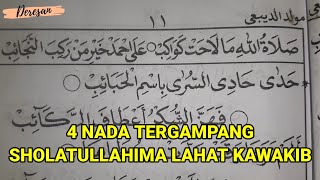 Deresan
١١
مولد الديبعي
صَلَاةُ اللهِ مَا لَاحَتْ كَوَاكِبْ ۞ عَلَى أَحْمَدْ خَيْرِ مَنْ رَكِبَ النَّجَائِبْ
حَدَى حَادِى السُّرَى بِاسْمِ الْحَبَائِبْ
فَهَزَّ السُّكْرُ أَعْطَافَ الرَّكَائِبْ
4 NADA TERGAMPANG
SHOLATULLAHIMA LAHAT KAWAKIB